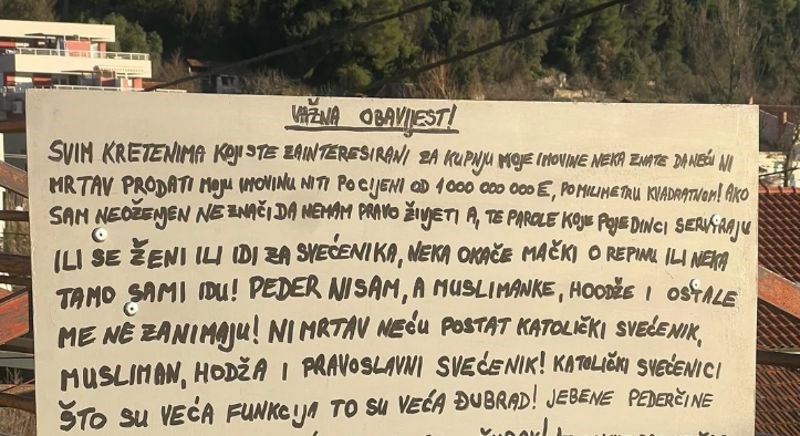 VAŽNA OBAVIJEST!
SVIM KRETENIMA KOJI STE ZAINTERESIRANI ZA KUPNJU MOJE IMOVINE NEKA ZNATE DA NEĆU NI
MRTAV PRODATI MOJU IMOVINU NITI PO CIJENI OD 1000 000 000 E, PO MILIMETRU KVADRATNOM! AKO
SAM NEOŽENJEN NE ZNAČI DA NEMAM PRAVO ŽIVJETI A, TE PAROLE KOJE POJEDINCI SERVIRAJU
ILI SE ŽENI ILI IDI ZA SVEĆENIKA, NEKA OKAČE MAČKI O REPINU ILI NEKA
TAMO SAMI IDU! PEDER NISAM, A MUSLIMANKE, HOODŽE I OSTALE
ME NE ZANIMAJU! NI MRTAV NEĆU POSTAT KATOLIČKI SVEĆENIK,
MUSLIMAN, HODŽA I PRAVOSLAVNI SVEĆENIK! KATOLIČKI SVEĆENICI
ŠTO SU VEĆA FUNKCIJA TO SU VEĆA ĐUBRAD! JEBENE PEDERČINE